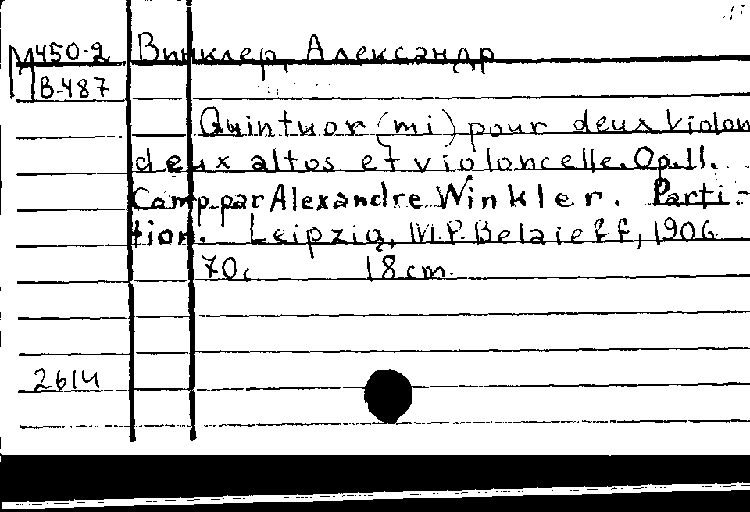 М450-2 Винклер, Александр
В-487
Quintuor (mi) pour deux violon
deux altos et violoncelle. Op. 11.
Comp. par Alexandre Winkler. Parti-
tion. Leipzig, M.P. Belaieff, 1906
70c 18 cm.
2614